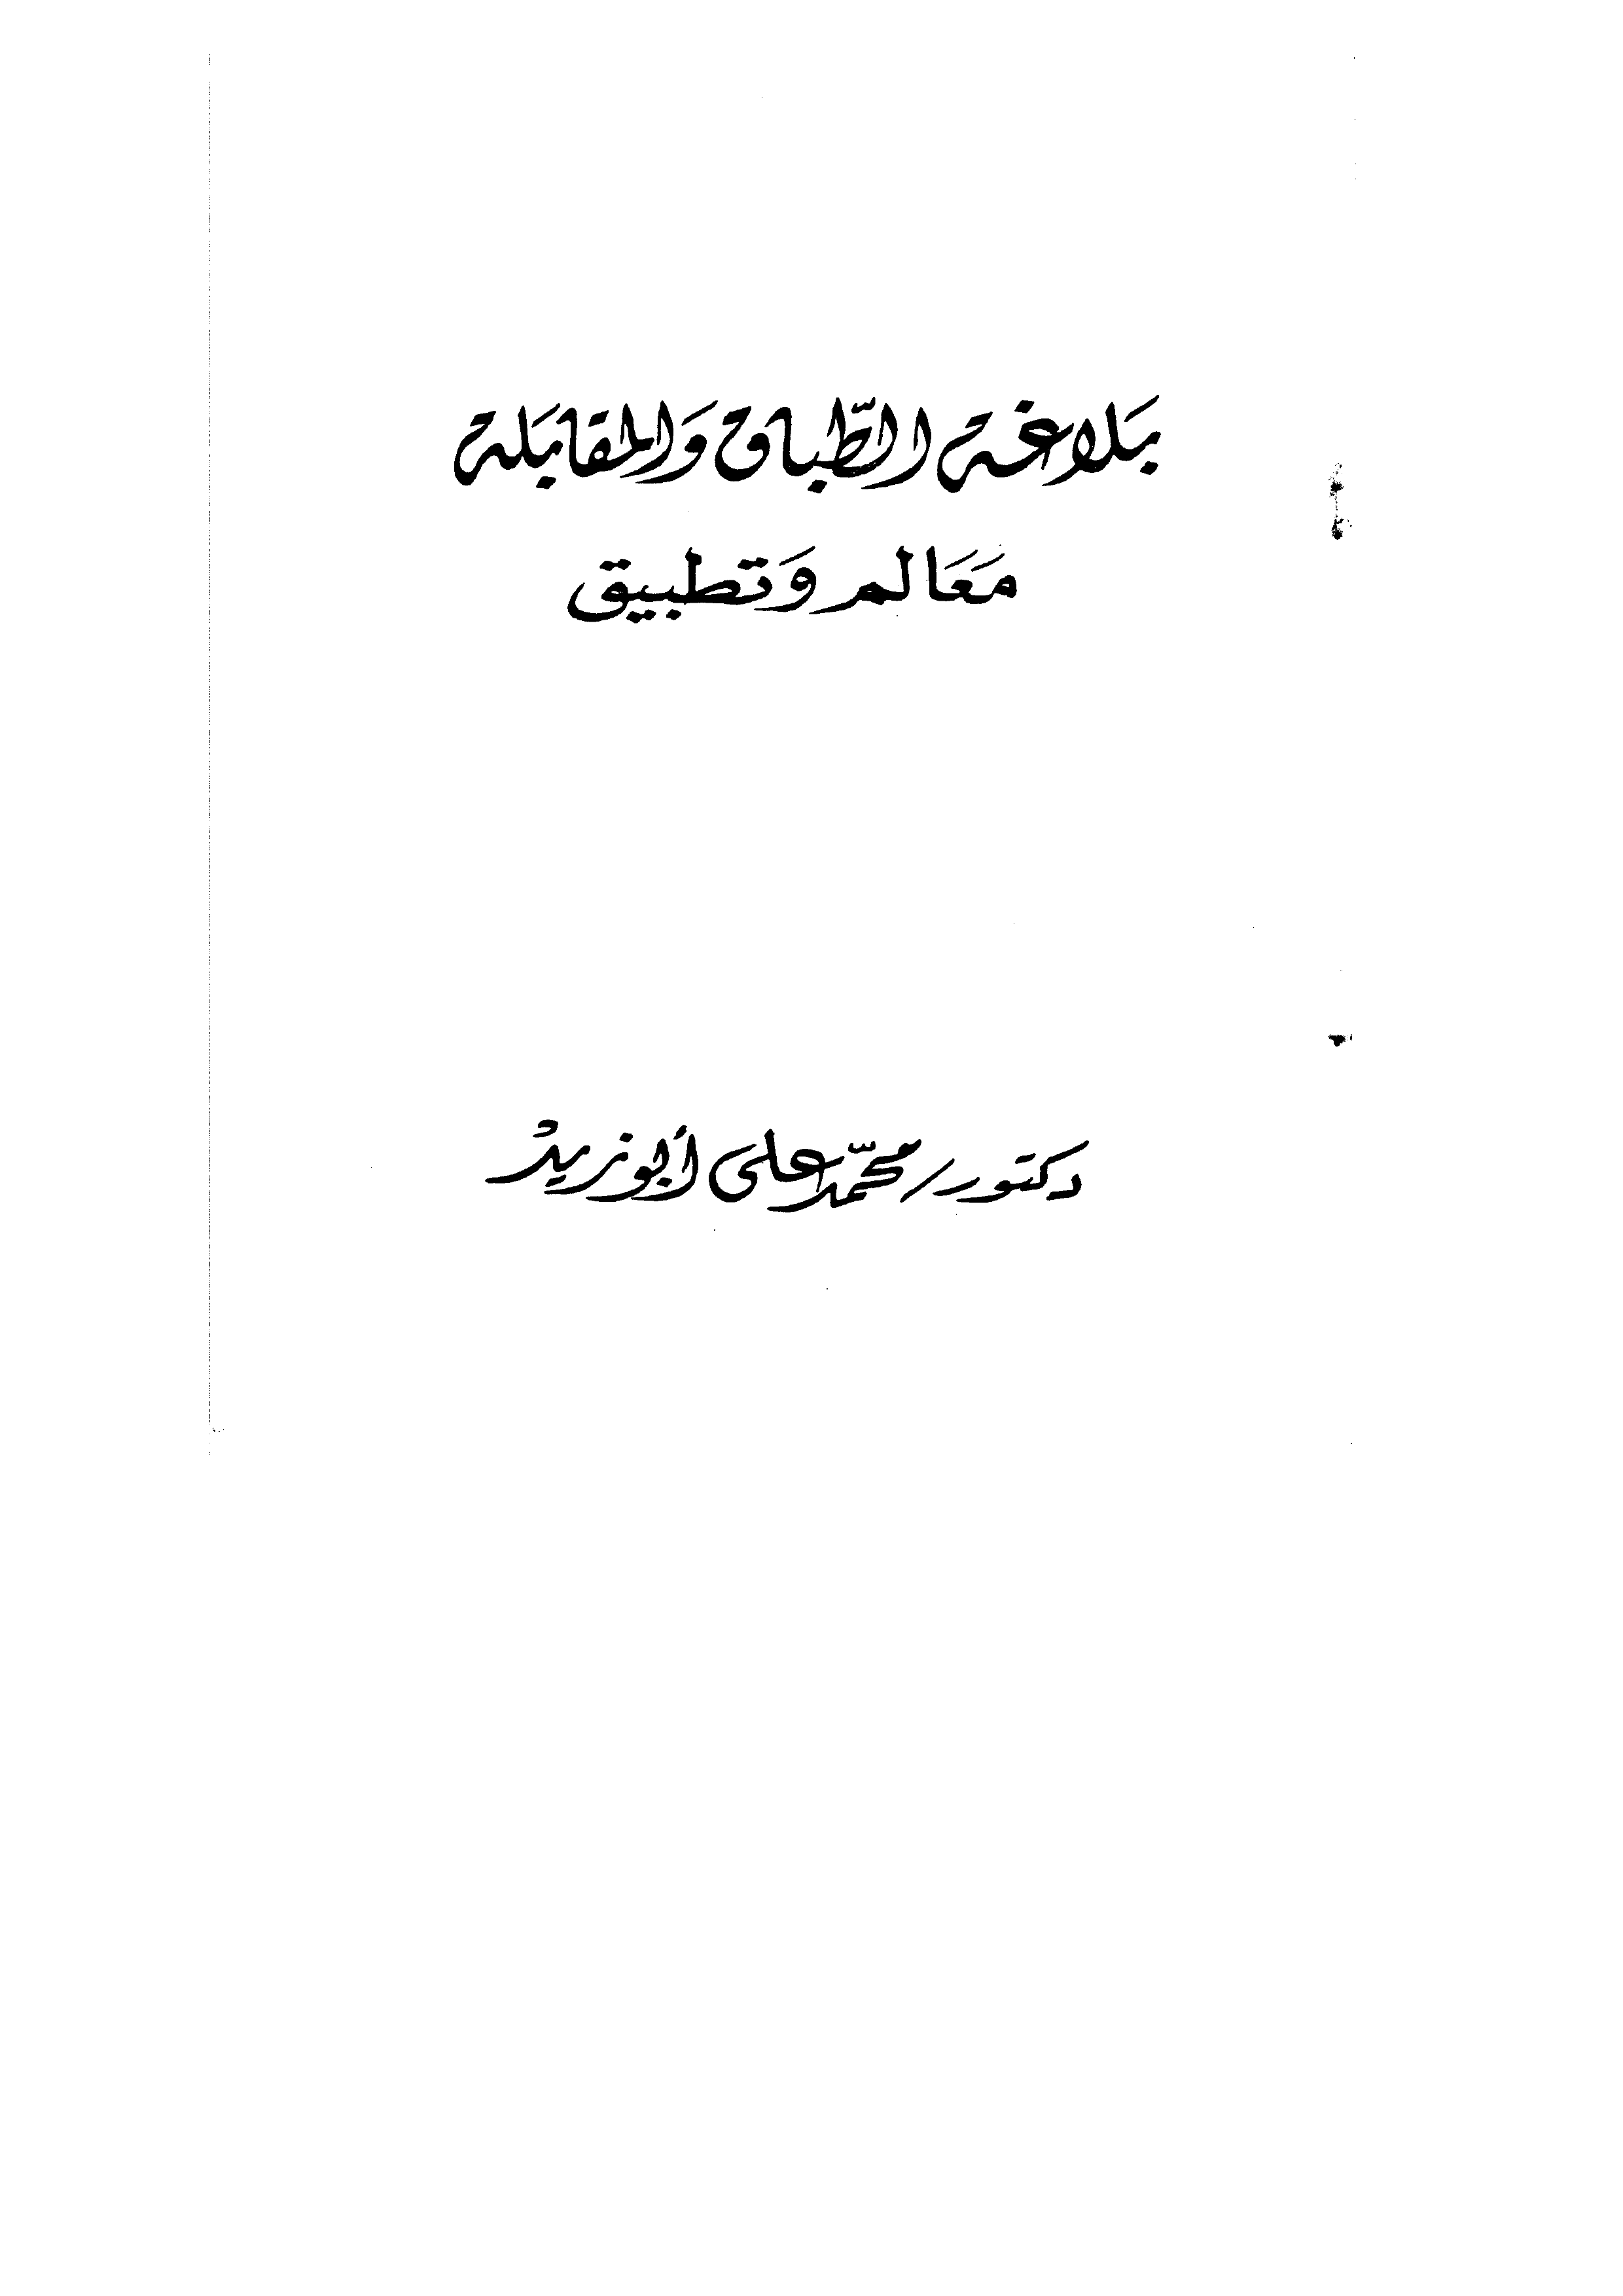 بَلاغة الطّباق وَالمقابَلة
مَعَالم وَتطبيق
دكتور/ محمّد على أبوزيدْ